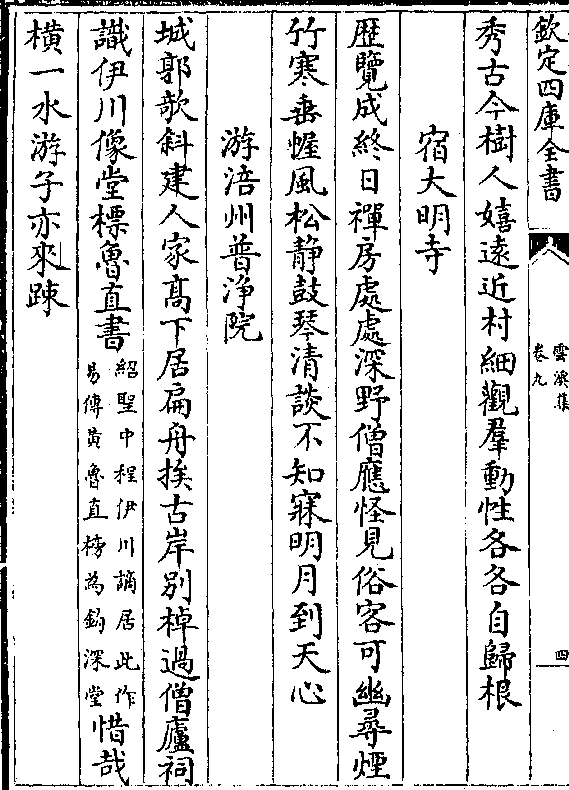 欽定四庫全書
雲溪集
卷九
四
秀古今樹人嬉遠近村細觀羣動性各各自歸根
宿大明寺
歴覽成終日禪房處處深野僧應怪見俗客可幽尋煙
竹寒垂幄風松静鼓琴清談不知寐明月到天心
游涪州普浄院
城郭欹斜建人家髙下居扁舟挨古岸别棹過僧廬祠
識伊川像堂標魯直書紹聖中程伊川謫居此作
易傳黄魯直榜為鈎深堂惜哉
横一水游子亦來踈